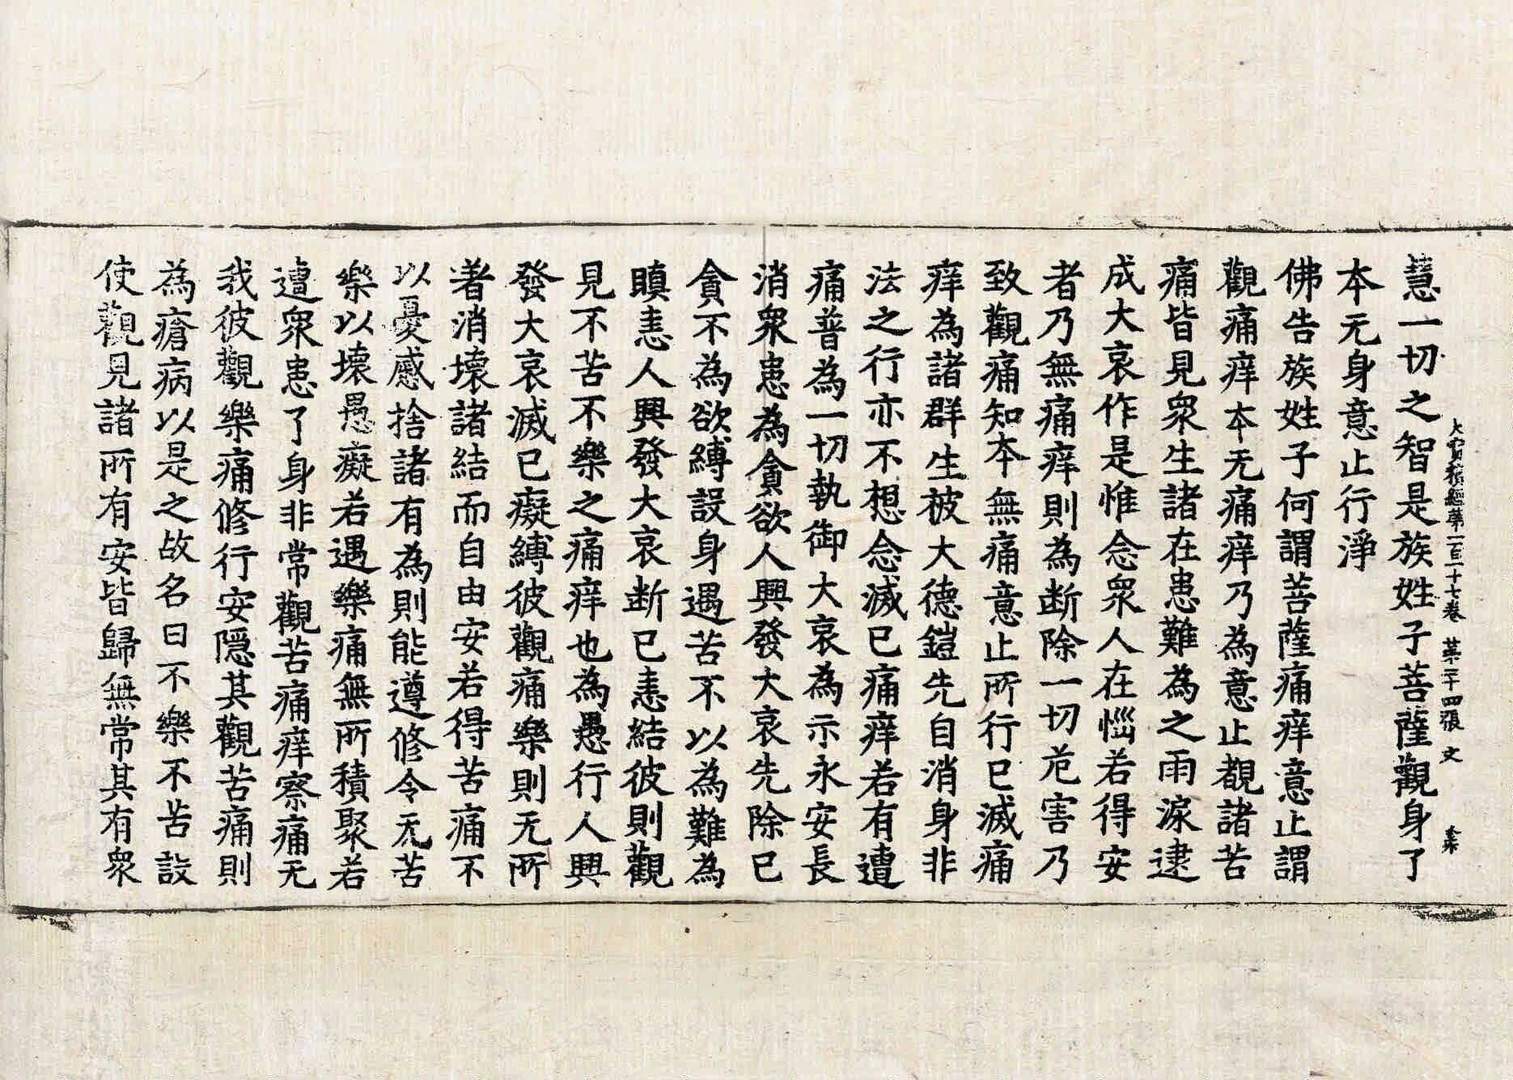 大寶積經苐一百一十七卷 苐二十四張 文
慧一切之智是族姓子菩薩觀身了
本无身意止行淨
佛告族姓子何謂菩薩痛痒意止謂
觀痛痒本无痛痒乃為意止覩諸苦
痛皆見衆生諸在患難為之雨淚逮
成大哀作是惟念衆人在惱若得安
者乃無痛痒則為断除一切危害乃
致觀痛知本無痛意止所行已滅痛
痒為諸群生被大德鎧先自消身非
法之行亦不想念滅已痛痒若有遭
痛普為一切執御大哀為示永安長
消衆患為貪欲人興發大哀先除已
貪不為欲縛設身遇苦不以為難為
瞋恚人興發大哀断已恚結彼則觀
見不苦不樂之痛痒也為愚行人興
發大哀滅已癡縛彼觀痛樂則无所
著消壞諸結而自由安若得苦痛不
以憂慼捨諸有為則能遵修令无苦
樂以壞愚癡若遇樂痛無所積聚若
遭衆患了身非常觀苦痛痒察痛无
我彼觀樂痛修行安隱其觀苦痛則
為瘡病以是之故名曰不樂不苦設
使觀見諸所有安皆歸無常其有衆